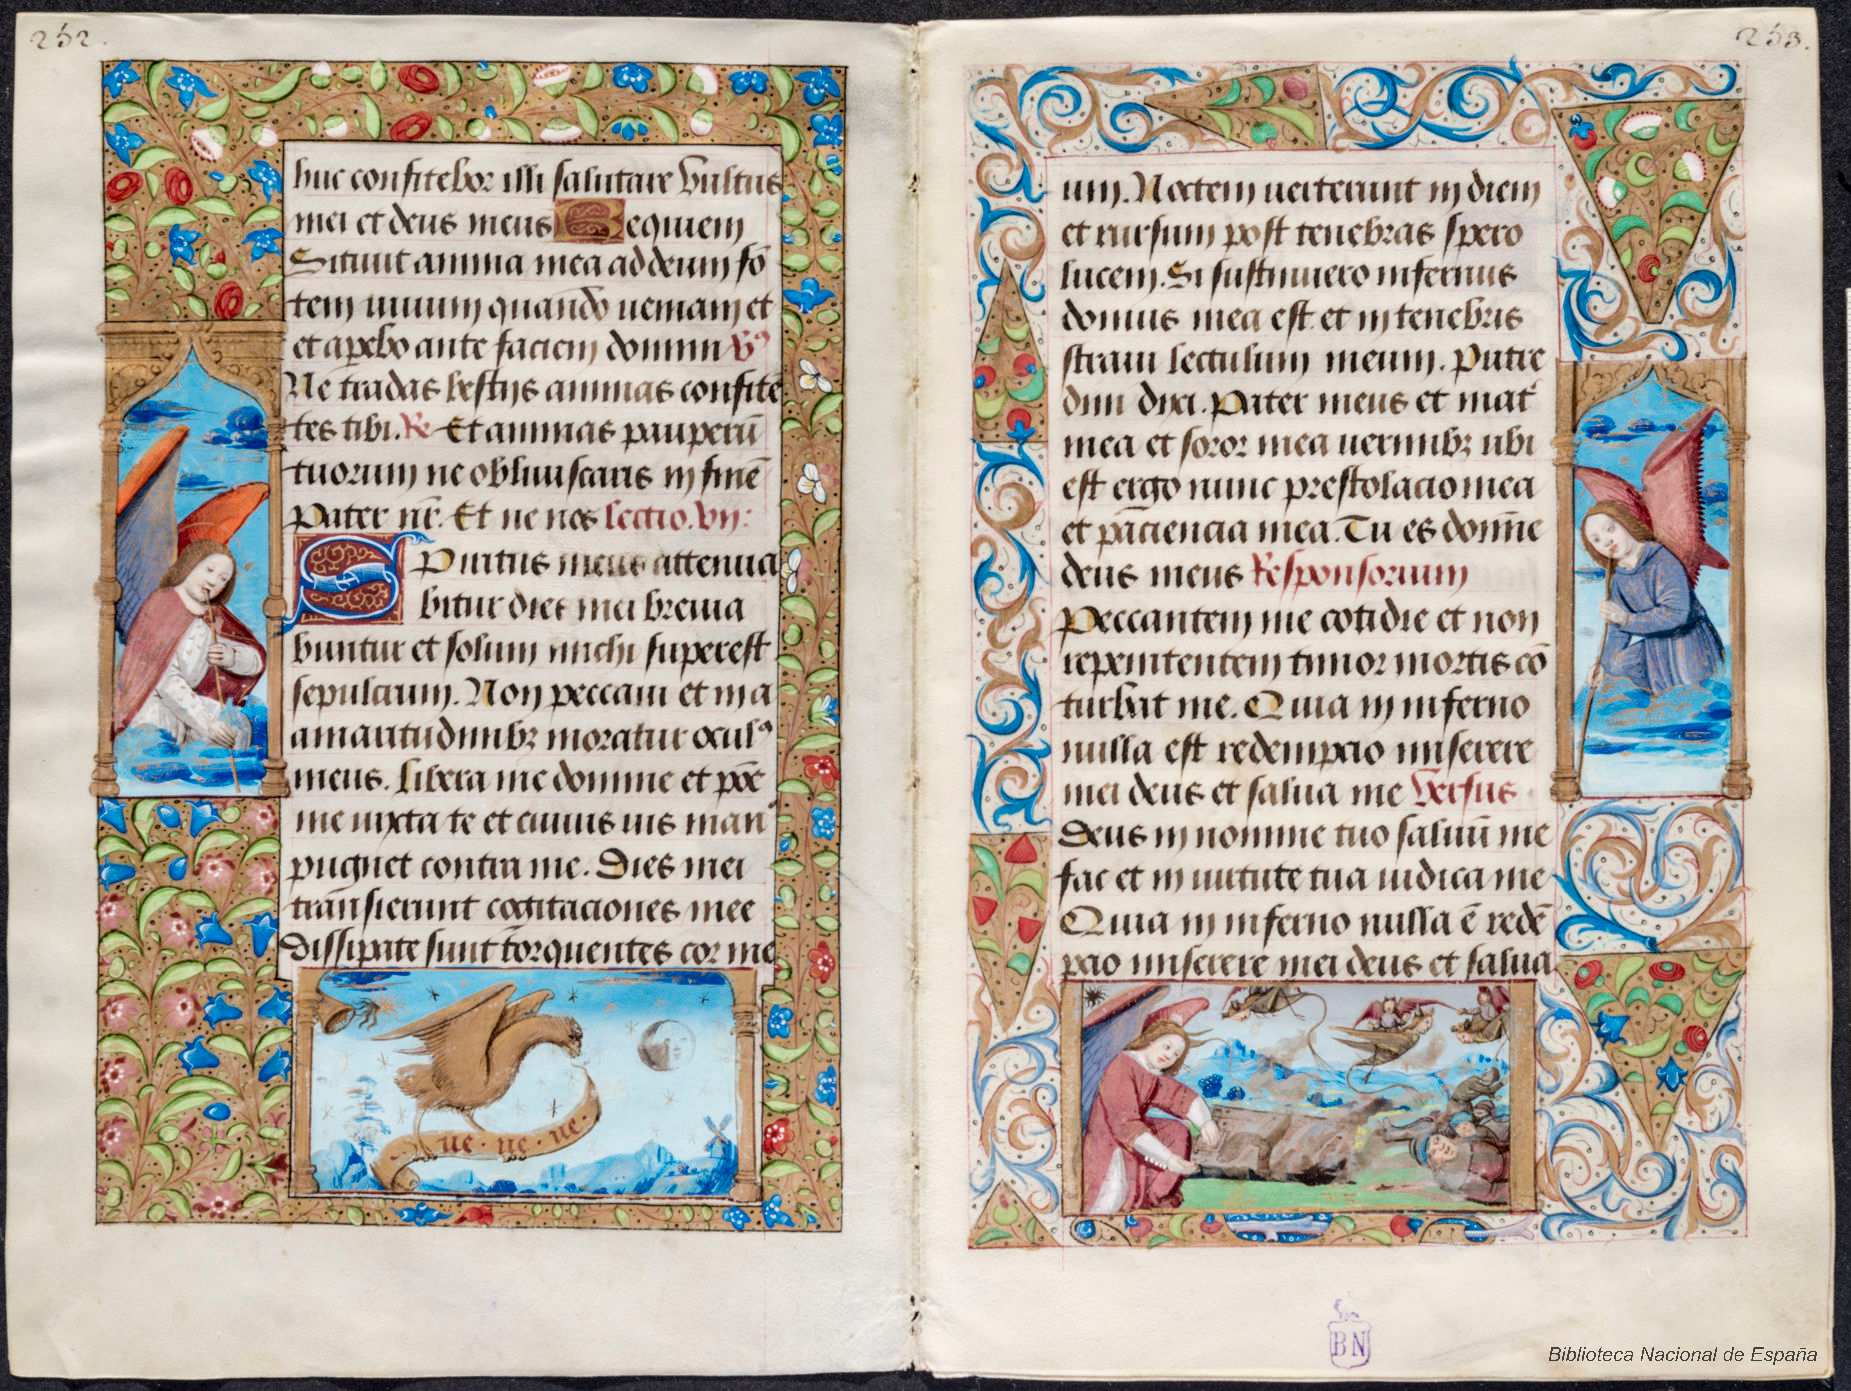 252.
huc confitebor illi salutare vultus
mei et deus meus Requiem
Sitiuit anima mea ad deum fō
tem uiuum quando ueniam et
et apebo ante faciem domini V̉
Ne tradas bestijs animas confitē
tes tibi. Re Et animas pauperū
tuorum ne obliuiscaris in finē
Pater nr̄. Et ne nos lectio. vij:
Spiritus meus attenua
bitur dies mei breuia
buntur et solum michi superest
sepulcrum. Non peccaui et in a
amaritudinibꝫ moratur oculꝰ
meus. Libera me domine et poē
me iuxta te et cuius uis manꝰ
pugnet contra me. Dies mei
trānsierunt cogitaciones mee
dissipate sunt tōrquentes cor me
ue · ue · ue ·
253.
um. Noctem uerterunt in diem
et rursum post tenebras spero
lucem. Si sustinuero infernus
domus mea est et in tenebris
straui lectulum meum. Putre
dini dixi. Pater meus et mat̉
mea et soror mea uermibꝫ ubi
est ergo nunc prestolacio mea
et pāciencia mea. Tu es domīne
deus meus Responsorium
Peccantem me cotidie et non
repenitentem timor mortis cō
turbat me. Quia in inferno
nulla est redempcio miserere
mei deus et salua me Versus
Deus in nomine tuo saluū me
fac et in uirtute tua iudica me
Quia in inferno nulla ē redē
pcio miserere mei deus et salua
BN
Biblioteca Nacional de España